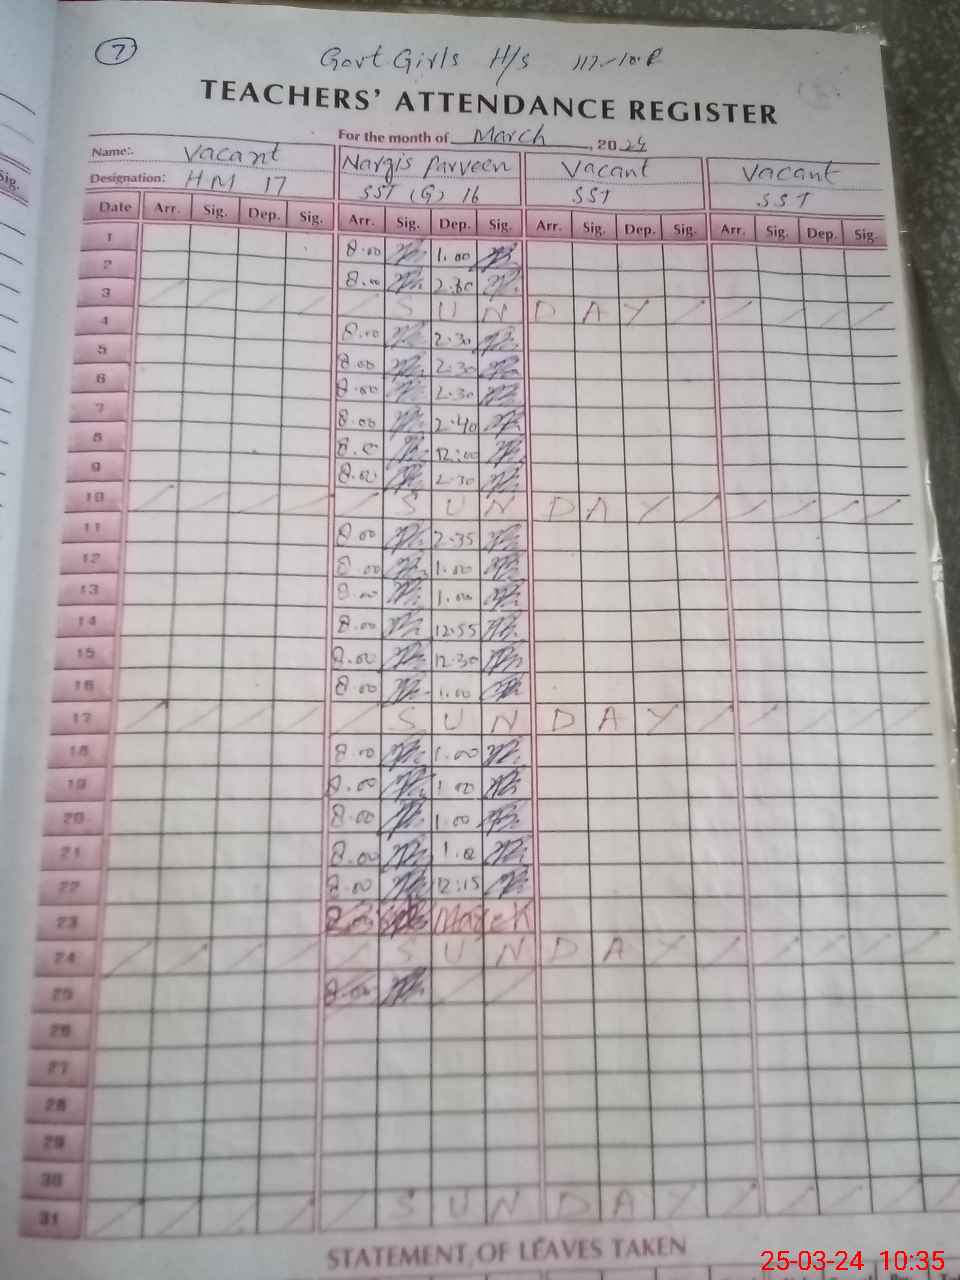 7
Govt Girls H/S 117-10.R
TEACHERS' ATTENDANCE REGISTER
For the month of March, 2024
Name:. Vacant Nargis Parveen Vacant Vacant
Designation: HM 17 SST (G) 16 SST SST
Date Arr. Sig. Dep. Sig. Arr. Sig. Dep. Sig. Arr. Sig. Dep. Sig. Arr. Sig. Dep. Sig.
1 8.00 1.00
2 8.00 2.30
3 SUNDAY
4 8.00 2.30
5 8.00 2.30
6 8.00 2.30
7 8.00 2.40
8 8.0 12:00
9 8.00 2.30
10 SUNDAY
11 8.00 2.35
12 8.00 1.00
13 8.00 1.00
14 8.00 12.55
15 8.00 12.30
16 8.00 1.00
17 SUNDAY
18 8.00 1.00
19 8.00 1.00
20 8.00 1.00
21 8.00 1.0
22 8.00 12:15
23 23 March
24 SUNDAY
25 8.00
26
27
28
29
30
31 SUNDAY
STATEMENT OF LEAVES TAKEN
25-03-24 10:35
Sig.